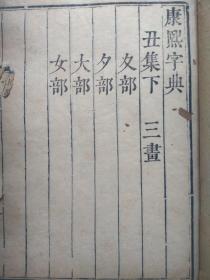 康熙字典
丑集下 三畫
夊部
夕部
大部
女部